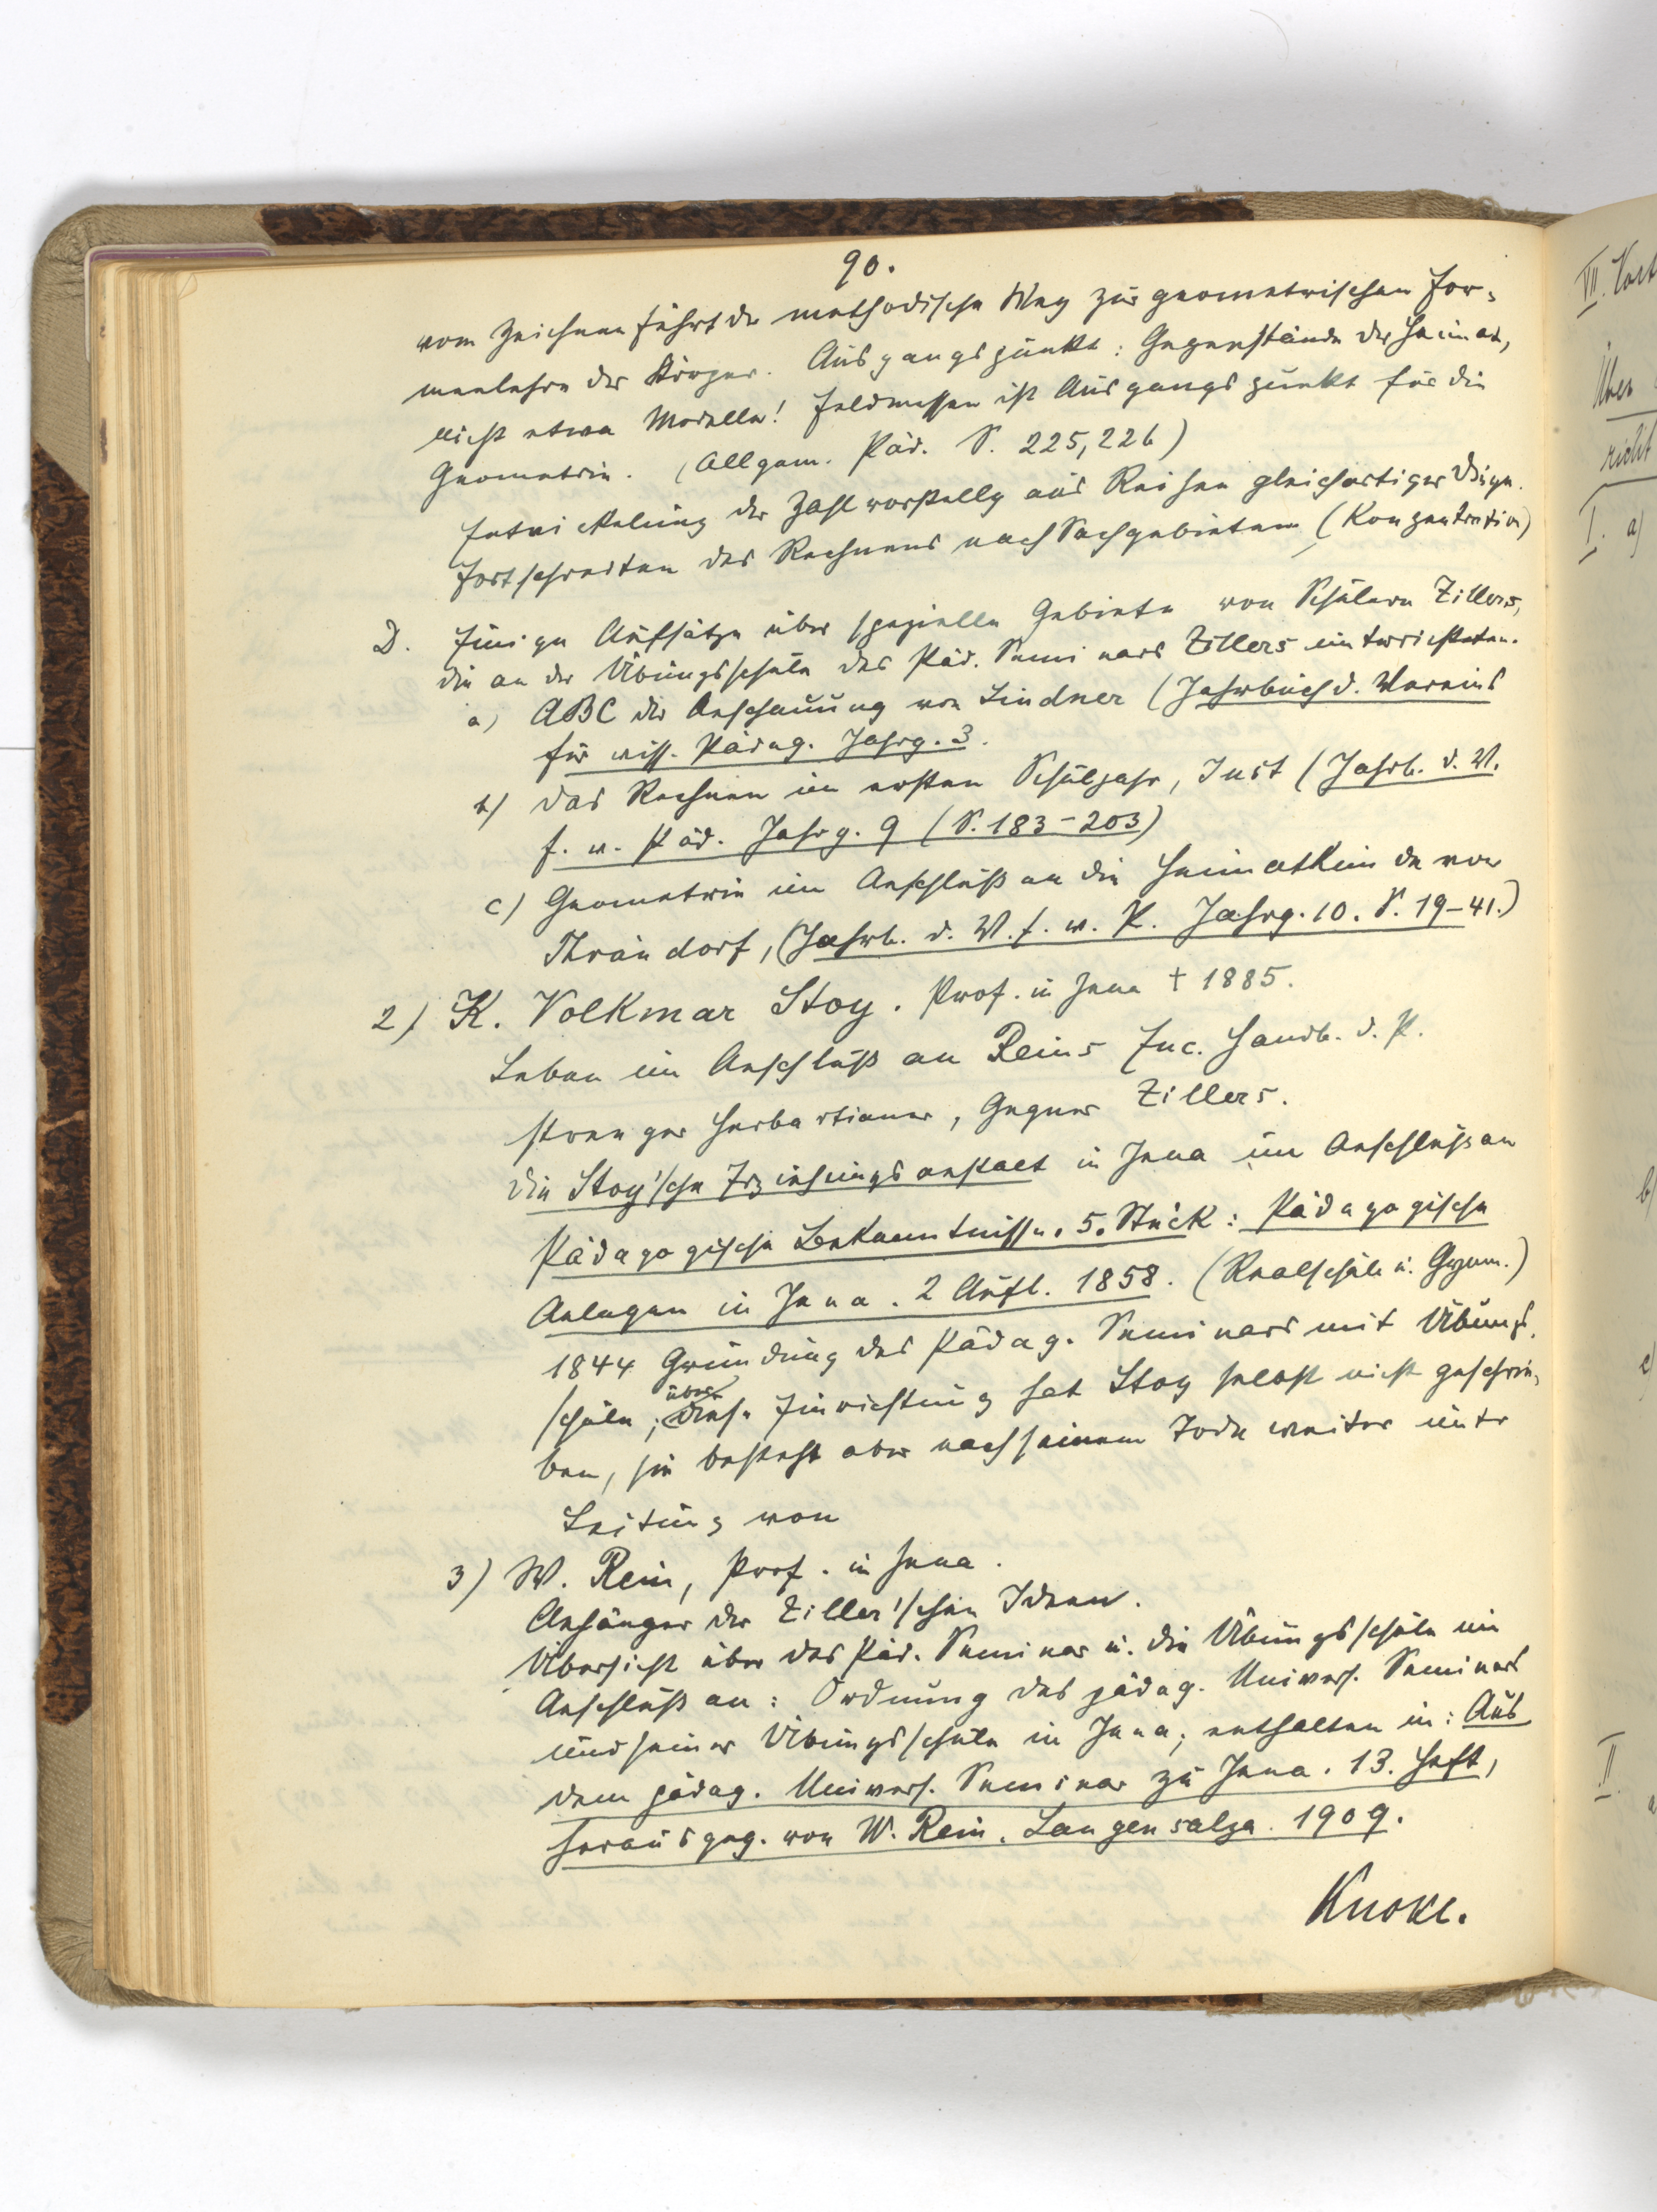 90.
vom Zeichnen führt der methodische Weg zur geometrischen For-
menlehre der Körper. Ausgangspunkt: Gegenstände der Heimat,
nicht etwa Modelle! Feldmessen ist Ausgangspunkt für die
Geometrie. (Allgem. Päd. S. 225, 226)
Entwickelung der Zahlvorstellg aus Reihen gleichartiger Dinge.
Fortschreiten des Rechnens nach Sachgebieten (Konzentration)
D. Einige Aufsätze über spezielle Gebiete von Schülern Zillers,
die an der Übungsschule des Päd. Seminars Zillers unterrichteten.
a) ABC der Anschauung von Lindner (Jahrbuch d. Vereins
für wiss. Pädag. Jahrg. 3.
b) das Rechnen im ersten Schuljahr, Just (Jahrb. d. V.
f. w. Päd. Jahrg. 9 (S. 183-203)
c) Geometrie im Anschluß an die Heimatkunde von
Thrändorf, (Jahrb. d. V. f. w. P. Jahrg. 10. S. 19-41.)
2) K. Volkmar Stoy. Prof. in Jena † 1885.
Leben im Anschluß an Reins Enc. Handb. d. P.
strenger Herbartianer, Gegner Zillers.
die Stoy'sche Erziehungsanstalt in Jena im Anschluß an
Pädagogische Bekenntnisse. 5. Stück: Pädagogische
Anlagen in Jena. 2 Aufl. 1858. (Realschule u. Gymn.)
1844 Gründung des Pädag. Seminars mit Übungs-
schule; über diese Einrichtung hat Stoy selbst nicht geschrie-
ben, sie besteht aber nach seinem Tode weiter unter
Leitung von
3) W. Rein, Prof. in Jena.
Anhänger der Ziller'schen Ideen.
Übersicht über das Päd. Seminar u. die Übungsschule im
Anschluß an: Ordnung des pädag. Univers. Seminars
und seiner Übungsschule in Jena; enthalten in: Aus
dem pädag. Univers. Seminar zu Jena. 13. Heft,
herausgeg. von W. Rein. Langensalza. 1909.
Knoke.
VII.
Über
richt
I. a)
b)
c)
II